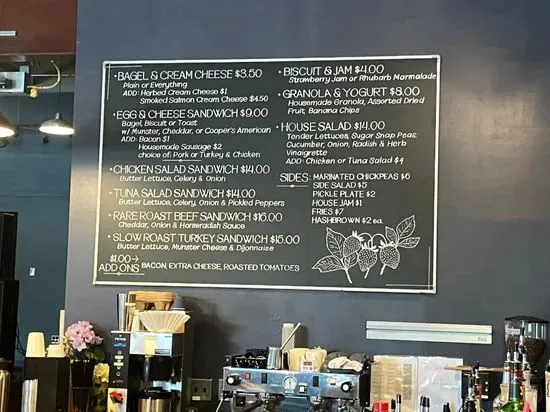 • BAGEL & CREAM CHEESE $3.50
Plain or Everything
ADD: Herbed Cream Cheese $1
Smoked Salmon Cream Cheese $4.50
• EGG & CHEESE SANDWICH $9.00
Bagel, Biscuit or Toast
w/ Munster, Cheddar, or Cooper's American
ADD: Bacon $1
Housemade Sausage $2
choice of: Pork or Turkey & Chicken
• CHICKEN SALAD SANDWICH $14.00
Butter Lettuce, Celery & Onion
• TUNA SALAD SANDWICH $14.00
Butter Lettuce, Celery, Onion & Pickled Peppers
• RARE ROAST BEEF SANDWICH $16.00
Cheddar, Onion & Horseradish Sauce
• SLOW ROAST TURKEY SANDWICH $15.00
Butter Lettuce, Munster Cheese & Dijonnaise
$1.00→
ADD ONS BACON, EXTRA CHEESE, ROASTED TOMATOES
• BISCUIT & JAM $4.00
Strawberry Jam or Rhubarb Marmalade
• GRANOLA & YOGURT $8.00
Housemade Granola, Assorted Dried
Fruit, Banana Chips
• HOUSE SALAD $14.00
Tender Lettuces, Sugar Snap Peas,
Cucumber, Onion, Radish & Herb
Vinaigrette
ADD: Chicken or Tuna Salad $4
SIDES: MARINATED CHICKPEAS $6
SIDE SALAD $5
PICKLE PLATE $2
HOUSE JAM $1
FRIES $7
HASHBROWN $2 ea.